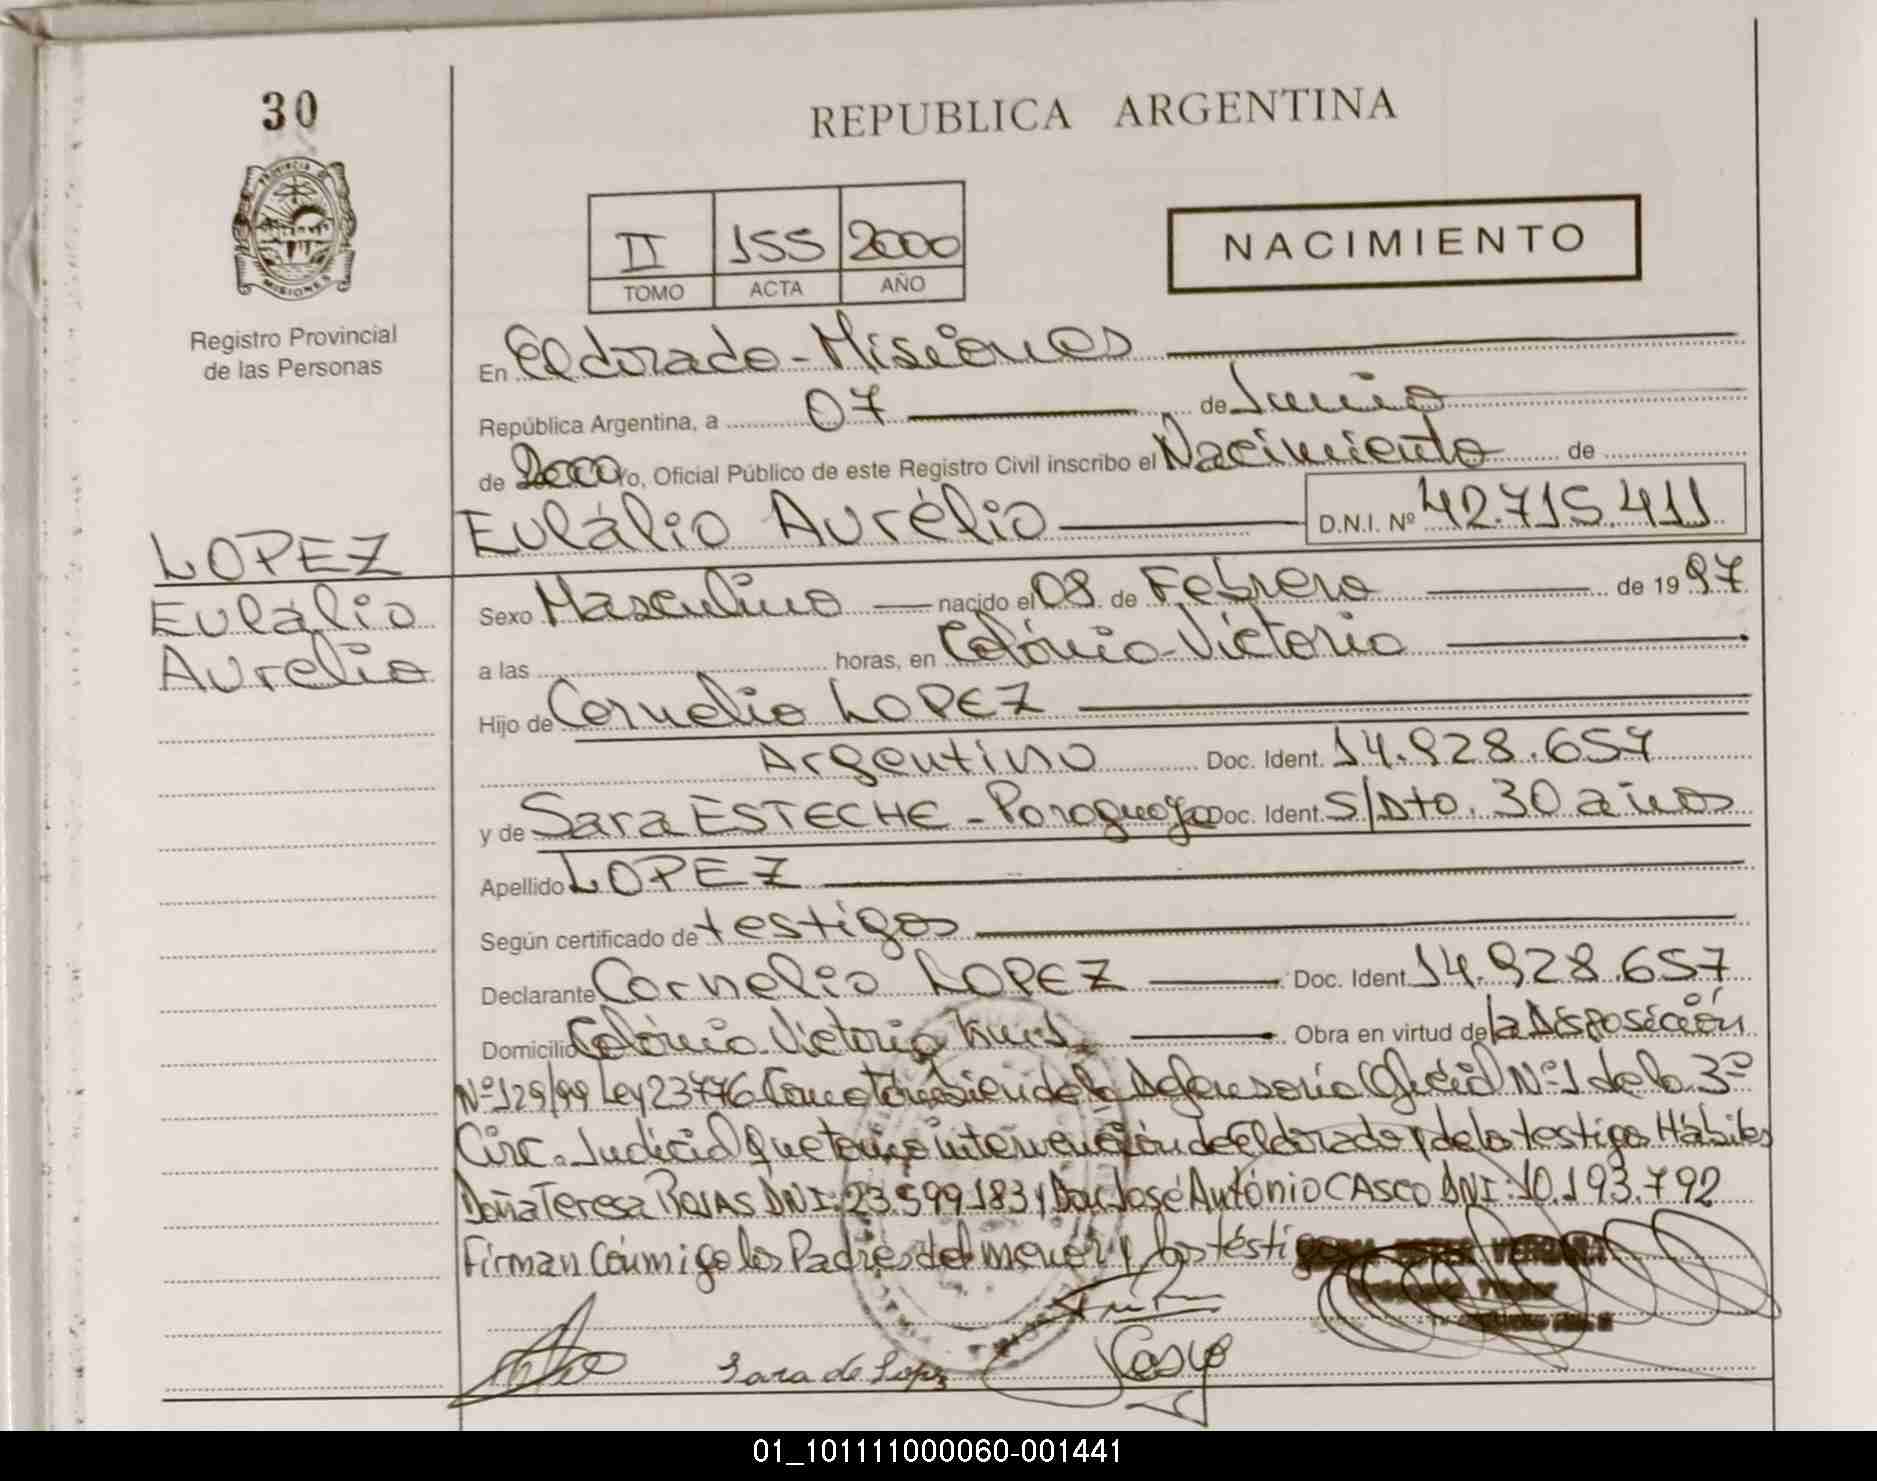 30
REPUBLICA ARGENTINA
PROVINCIA DE
MISIONES
II 155 2000
TOMO ACTA AÑO
NACIMIENTO
Registro Provincial
de las Personas
En Eldorado - Misiones
República Argentina, a 07 de Junio
de 2000 Yo, Oficial Público de este Registro Civil inscribo el Nacimiento de
Eulálio Aurélio D.N.I. Nº 42.715.411
LOPEZ
Eulálio
Aurelio
Sexo Masculino nacido el 08 de Febrero de 19 97
a las horas, en Colónia Victoria
Hijo de Cornelio LOPEZ
Argentino Doc. Ident. 14.928.657
y de Sara ESTECHE - Paraguaya Doc. Ident. S/Dto. 30 años
Apellido LOPEZ
Según certificado de testigos
Declarante Cornelio LOPEZ Doc. Ident. 14.928.657
Domicilio Colónia Victoria Km Obra en virtud de la Disposición
Nº 129/99 Ley 23776 Como también de la Defensoria Oficial Nº 1 de la 3º
Circ. Judicial que tomo intervención de Eldorado y de lo testigos Hábiles
Doña Teresa ROJAS DNI: 23.599.183 y Don José António CASCO DNI: 10.193.792
Firman Conmigo los Padres del menor y los téstigos
Sara de Lopez
Casco
01_101111000060-001441